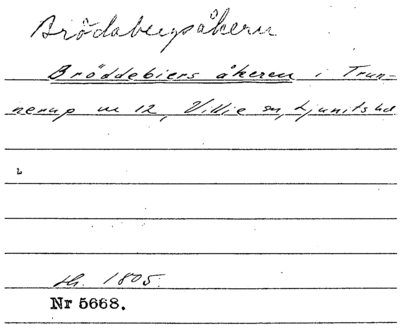 Brödabergsåkern
Bröddebiers åkeren i Trun-
nerup nr 12, Villie sn, Ljunits hd
sk. 1805.
Nr 5668.